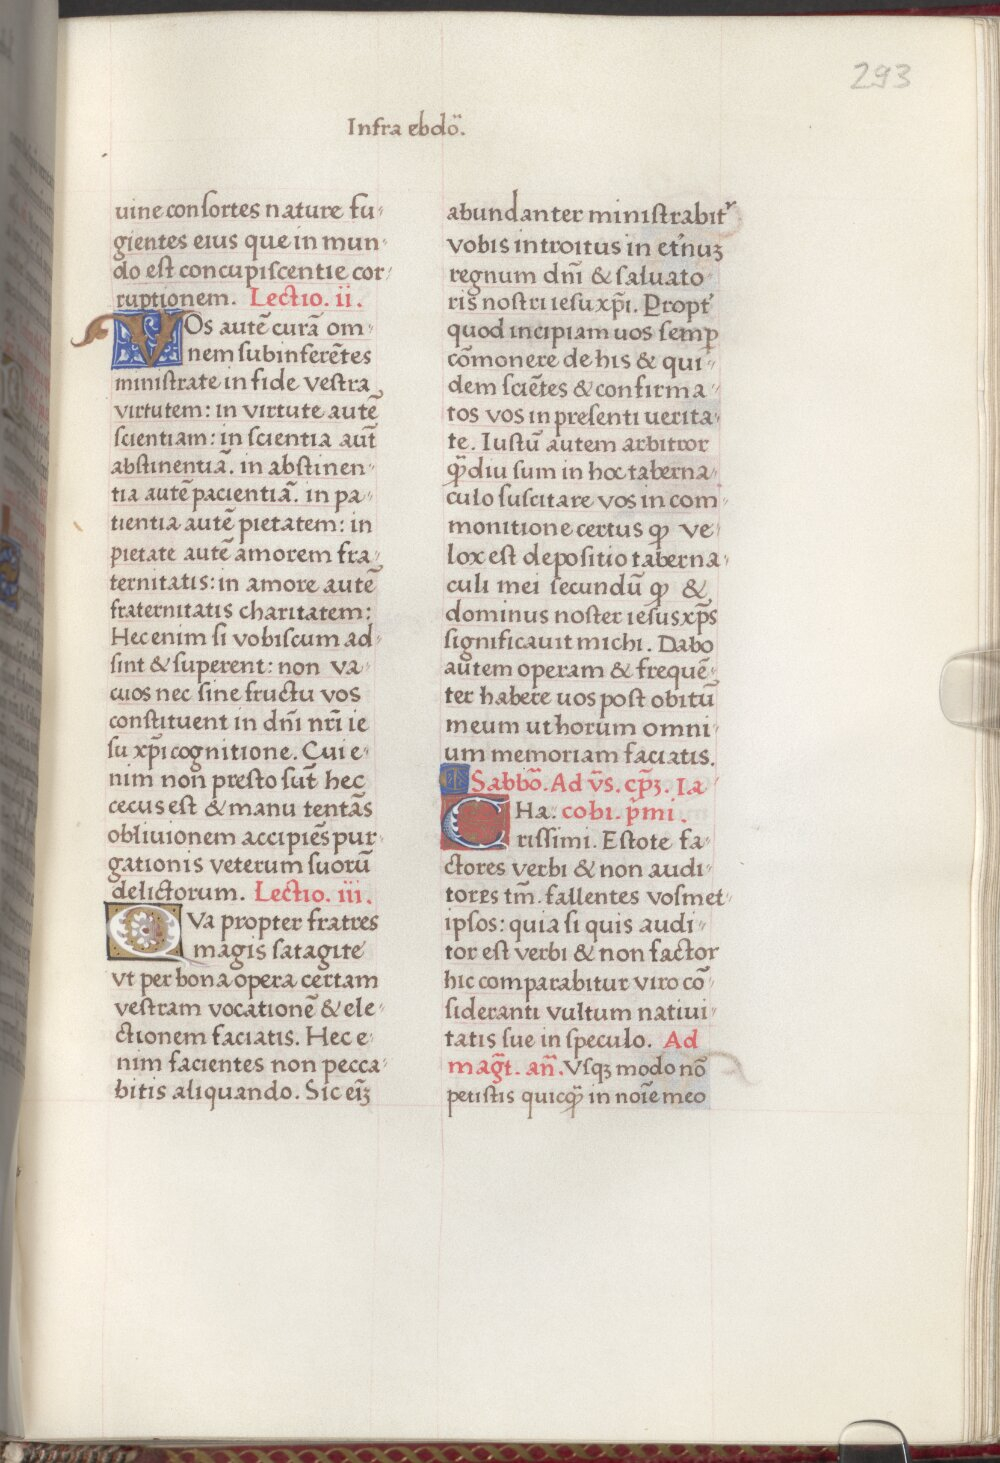 293
Infra ebdo᷈.
uine consortes nature fu-
gientes eius que in mun-
do est concupiscentie cor-
ruptionem. Lectio. ii.
VOs autē curā om-
nem subinferētes
ministrate in fide vestra
virtutem: in virtute autē
scientiam: in scientia aut̄
abstinentiā. in abstinen-
tia autē pacientiā. in pa-
tientia autē pietatem: in
pietate autē amorem fra-
ternitatis: in amore autē
fraternitatis charitatem:
Hec enim si vobiscum ad-
sint & superent: non va-
cuos nec sine fructu vos
constituent in dn̄i nr̄i ie
su xp̄i cognitione. Cui e-
nim non presto sūt hec
cecus est & manu tentās
obliuionem accipiēs pur-
gationis veterum suorū
delictorum. Lectio. iii.
QVa propter fratres
magis satagite
vt per bona opera certam
vestram vocationē & ele-
ctionem faciatis. Hec e-
nim facientes non pecca-
bitis aliquando. Sic eiꝫ̄
abundanter ministrabit᷑
vobis introitus in et᷑nuꝫ
regnum dn̄i & saluato-
ris nostri iesu xp̄i. Propt᷑
quod incipiam uos semꝑ
cōmonere de his & qui-
dem sciētes & confirma-
tos vos in presenti uerita-
te. Iustū autem arbitror
qᷓ̄diu sum in hoc taberna-
culo suscitare vos in com-
monitione certus ꝙ ve-
lox est depositio taberna-
culi mei secundū ꝙ &
dominus noster iesus xp̄s
significauit michi. Dabo
autem operam & frequē-
ter habere uos post obitū
meum ut horum omni-
um memoriam faciatis.
Sabbō. Ad v̄s. cp̄ꝫ. Ia
CHA- cobi. p̄mi.
rissimi. Estote fa-
ctores verbi & non audi-
tores tm̄. fallentes vosmet-
ipsos: quia si quis audi-
tor est verbi & non factor
hic comparabitur viro cō-
sideranti vultum natiui-
tatis sue in speculo. Ad
mag̅t. an̄. Vsqꝫ modo nō
petistis quicqᷓ̄ in noīe meo